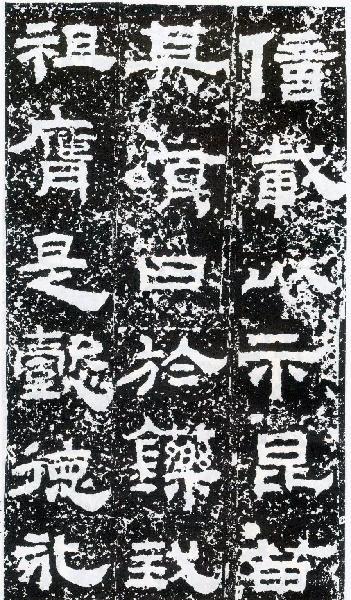 備載以示昆苗
其頌曰於鑠我
祖膺是懿德永